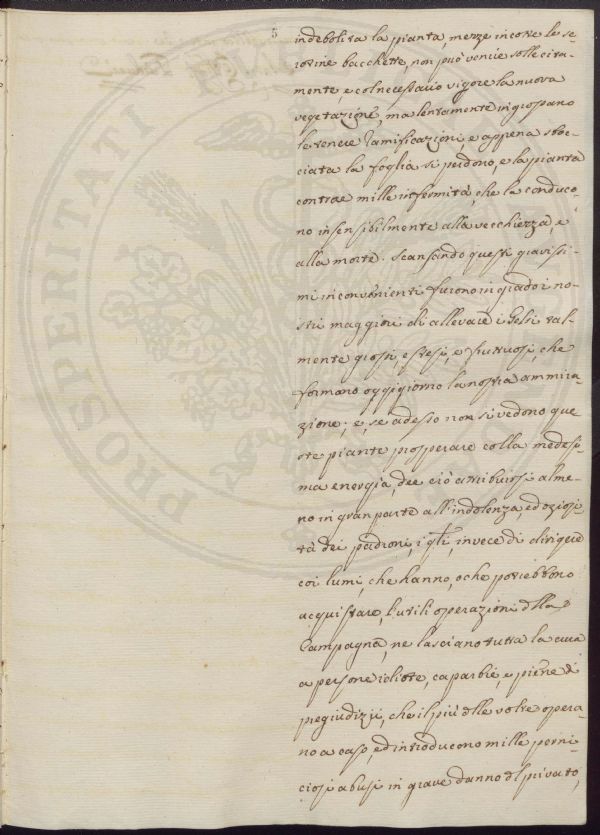 5
indebolita la pianta, mezze incotte le te-
nerine bacchette, non può venire sollecita-
mente, e col necessario vigore la nuova
vegetazione, ma lentamente ingrossano
le tenere ramificazioni, e appena sboc-
ciata la foglia si perdono, e la pianta
contrae mille infermità, che la conduco-
no insensibilmente alla vecchiezza, e
alla morte. Scansando questi gravissi-
mi inconvenienti furono in grado i no-
stri maggiori di allevare i Gelsi tal-
mente grossi, estesi, e fruttuosi, che
formano oggigiorno la nostra ammira-
zione; e, se adesso non si vedono que-
ste piante prosperare colla medesi-
ma energia, dee ciò attribuirsi alme-
no in gran parte all'indolenza, ed oziosi-
tà dei padroni, i qli, invece di dirigere
coi lumi, che hanno, o che potrebbono
acquistare, l'utili operazioni dlla
Campagna, ne lasciano tutta la cura
a persone idiote, caparbie, e piene di
pregiudizii, che il più dlle volte opera-
no a caso, ed introducono mille perni-
ciosi abusi in grave danno dl privato,
PROSPERITATI